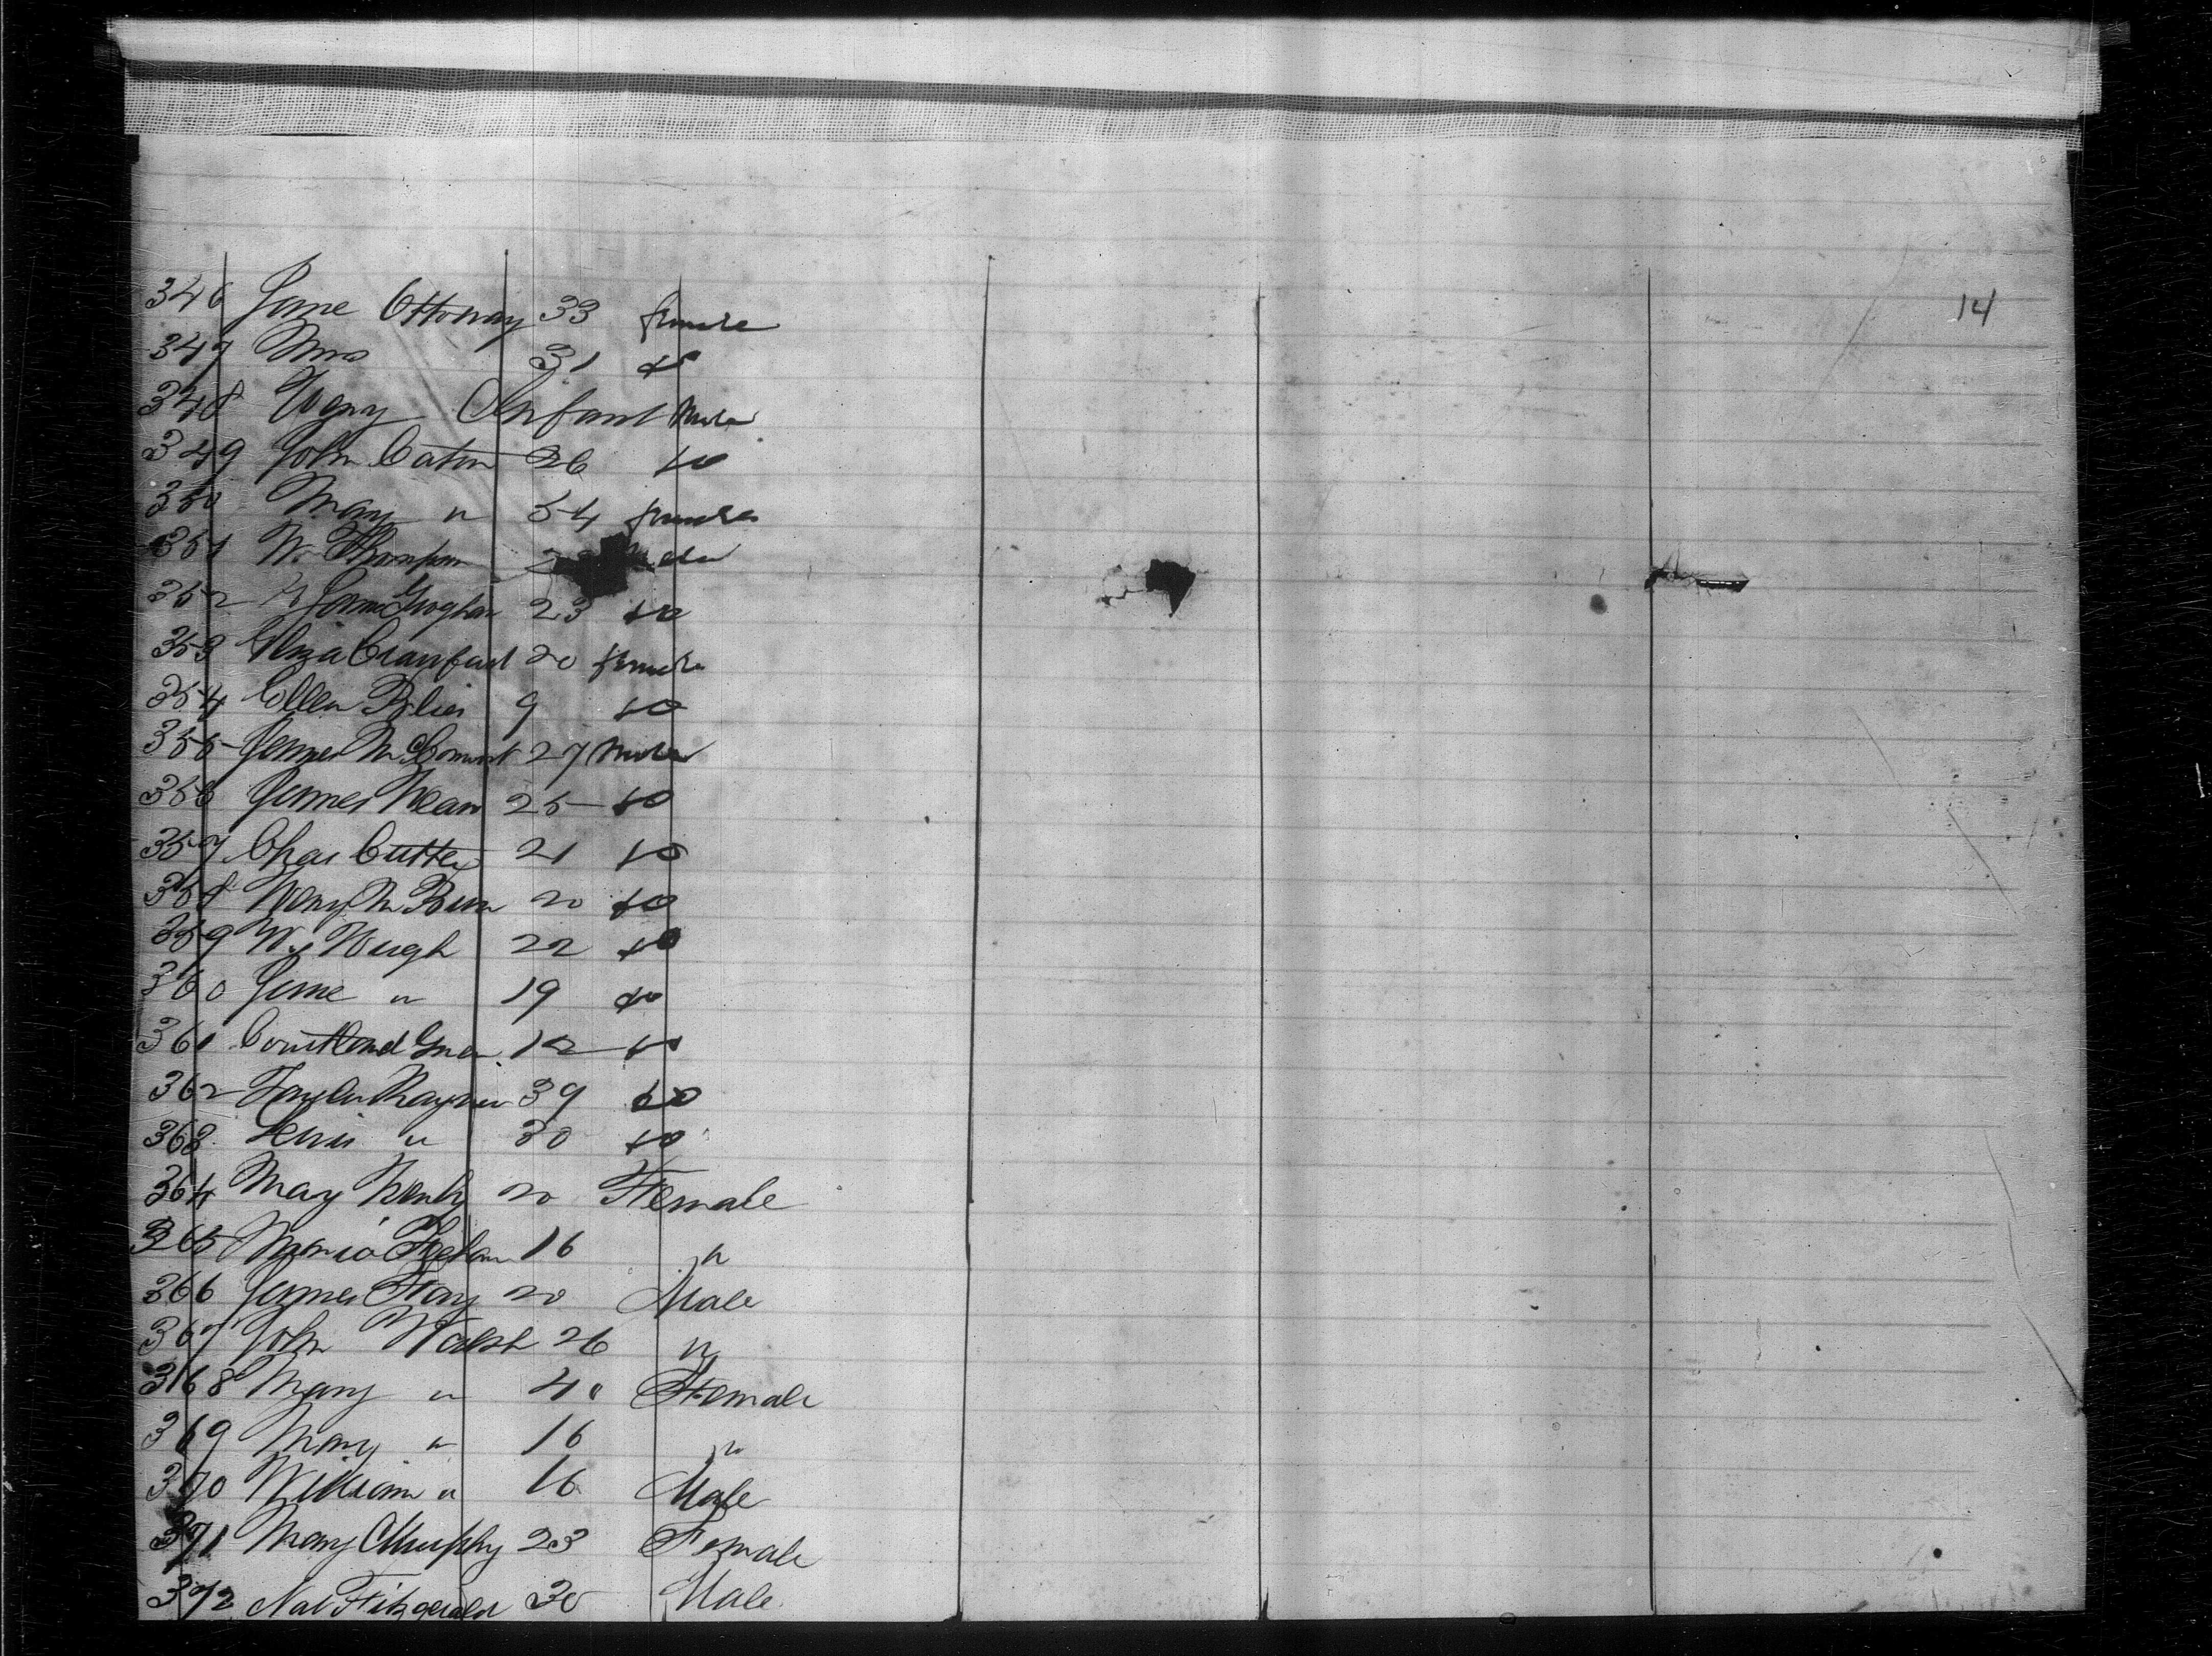 14
346 Jane Ottoway 33 female
347 Mrs 31 do
348 Infant Male
349 John Caton 26 do
350 Mary " 54 female
351 W. Thompson
352 23 do
353 Eliza Crawford 20 female
354 Ellen 9 do
355 James 27 Male
356 James 25 do
357 Chas Cutter 21 do
358 Henry 20 do
359 Wm 22 do
360 Jane " 19 do
361 Courtland 12 do
362 39 do
363 Lewis " 30 do
364 Mary 20 Female
365 Maria 16 "
366 James 20 Male
367 John Walsh 26 "
368 Mary " 40 Female
369 Mary " 16 "
370 William " 16 Male
371 Mary Murphy 23 Female
372 Nat Fitzgerald 30 Male